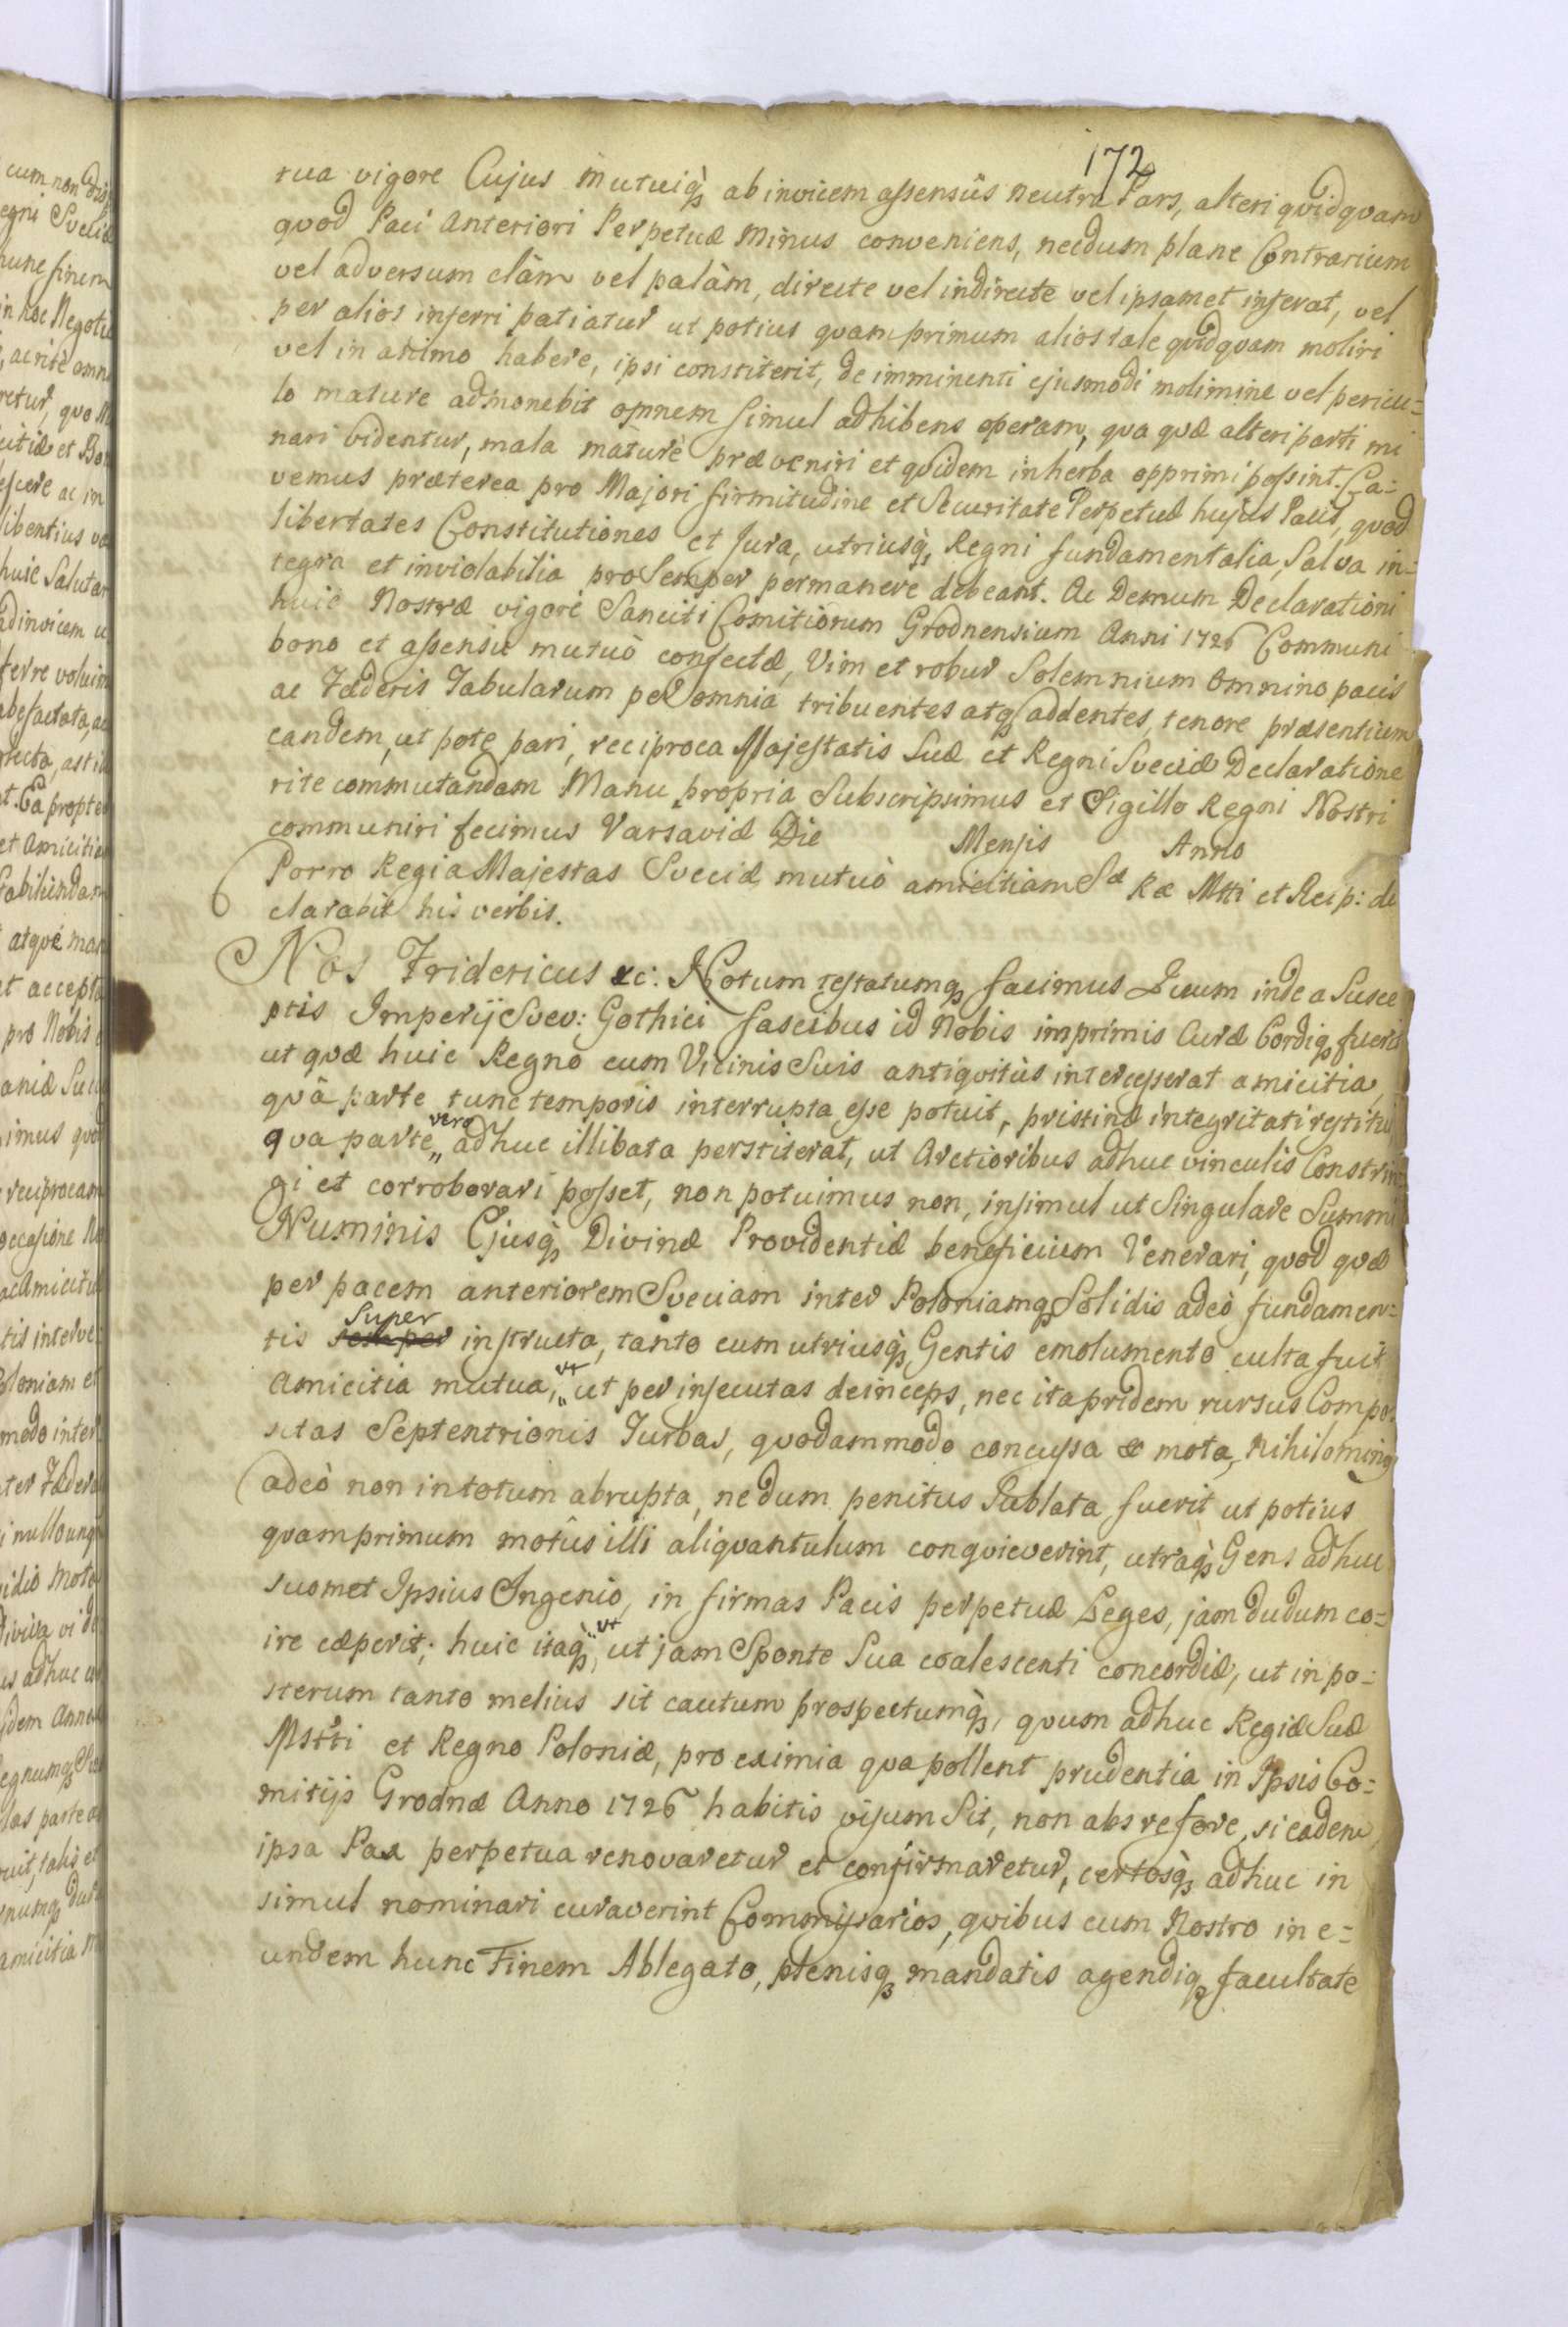 172
tua vigore Cujus mutuiq̀ꝫ ab invicem assensûs neutra Pars, alteri qvidqvam
qvod Paci Anteriori Perpetuæ minus conveniens, necdum plane Contrarium
vel adversum clàm vel palàm, directe vel indirecte vel ipsamet inferat, vel
per alios inferri patiatur ut potius qvamprimum alios tale qvidqvam moliri
vel in animo habere, ipsi constiterit, de imminenti ejusmodi molimine vel pericu=
lo mature admonebit omnem simul adhibens operam, qva qvæ alteri parti mi
nari videntur, mala màturè præveniri et qvidem in herba opprimi possint. Ca=
vemus præterea pro Majori firmitudine et Securitate Perpetuæ hujus Pacis, qvod
libertates Constitutiones et Jura, utriusq̀ꝫ Regni fundamentalia, Salva in=
tegra et inviolabilia pro Semper permanere debeant. Ac Demum Declarationi
huic Nostræ vigore Sanciti Comitiorum Grodnensium Anni 1726 Communi
bono et assensu mutuò confectæ, Vim et robur Solemnium omnino pacis
ac Fœderis Tabularum per omnia tribuentes atqꝫ addentes, tenore præsentium
eandem, ut pote pari, reciproca Majestatis Suæ et Regni Sveciæ Declaratione
rite commutandam Manu propria Subscripsimus et Sigillo Regni Nostri
communiri fecimus Varsaviæ Die Mensis Anno
6 Porro Regia Majestas Sveciæ mutuò amicitiam Sæ Ræ Mtti et Reip: de
clarabit his verbis.
Nos Fridericus &c: Notum testatumqꝫ facimus Qvum inde a Susce
ptis Imperij Sveo: Gothici fascibus id Nobis imprimis Curæ Cordiqꝫ fuerit
ut qvæ huic Regno cum Vicinis Suis antiqvitùs intercesserat amicitia,
qvâ parte tunc temporis interrupta esse potuit, pristinæ integritati restitui
qva parte vero adhuc illibata perstiterat, ut Arctioribus adhuc vinculis Constrin
gi et corroborari posset, non potuimus non, insimul ut Singulare Summi
Numinis Ejusq̀ꝫ Divinæ Providentiæ beneficium Venerari, qvod qvæ
per pacem anteriorem Sveciam inter Poloniamqꝫ Solidis adeò fundamen=
tis semper Super instructa, tanto cum utriusq̀ꝫ Gentis emolumento culta fuit
Amicitia mutua, ut ut per insecutas deinceps, nec ita pridem rursus Compo
sitas Septentrionis Turbas, qvodammodo concussa & mota, nihilominꝫ
adeò non in totum abrupta, nedum penitus Sublata fuerit ut potius
qvamprimum motûs illi aliqvantulum conqvieverint, utraq̀ꝫ Gens adhuc
suomet Ipsius Ingenio, in firmas Pacis perpetuæ Leges, jam dudum co=
ire cæperit; huic itaq̀ꝫ ut ut jam Sponte Sua coalescenti concordiæ, ut in po=
sterum tanto melius sit cautum prospectumq̀ꝫ, qvum adhuc Regiæ Suæ
Mstti et Regno Poloniæ, pro eximia qva pollent prudentia in Ipsis Co=
mitijs Grodnæ Anno 1726 habitis visum Sit, non abs re fore, si eadem
ipsa Pax perpetua renovaretur et confirmaretur, certosq̀ꝫ adhuc in
simul nominari curaverint Commissarios, qvibus cum Nostro in e=
undem hunc Finem Ablegato, plenisqꝫ mandatis agendiqꝫ facultate